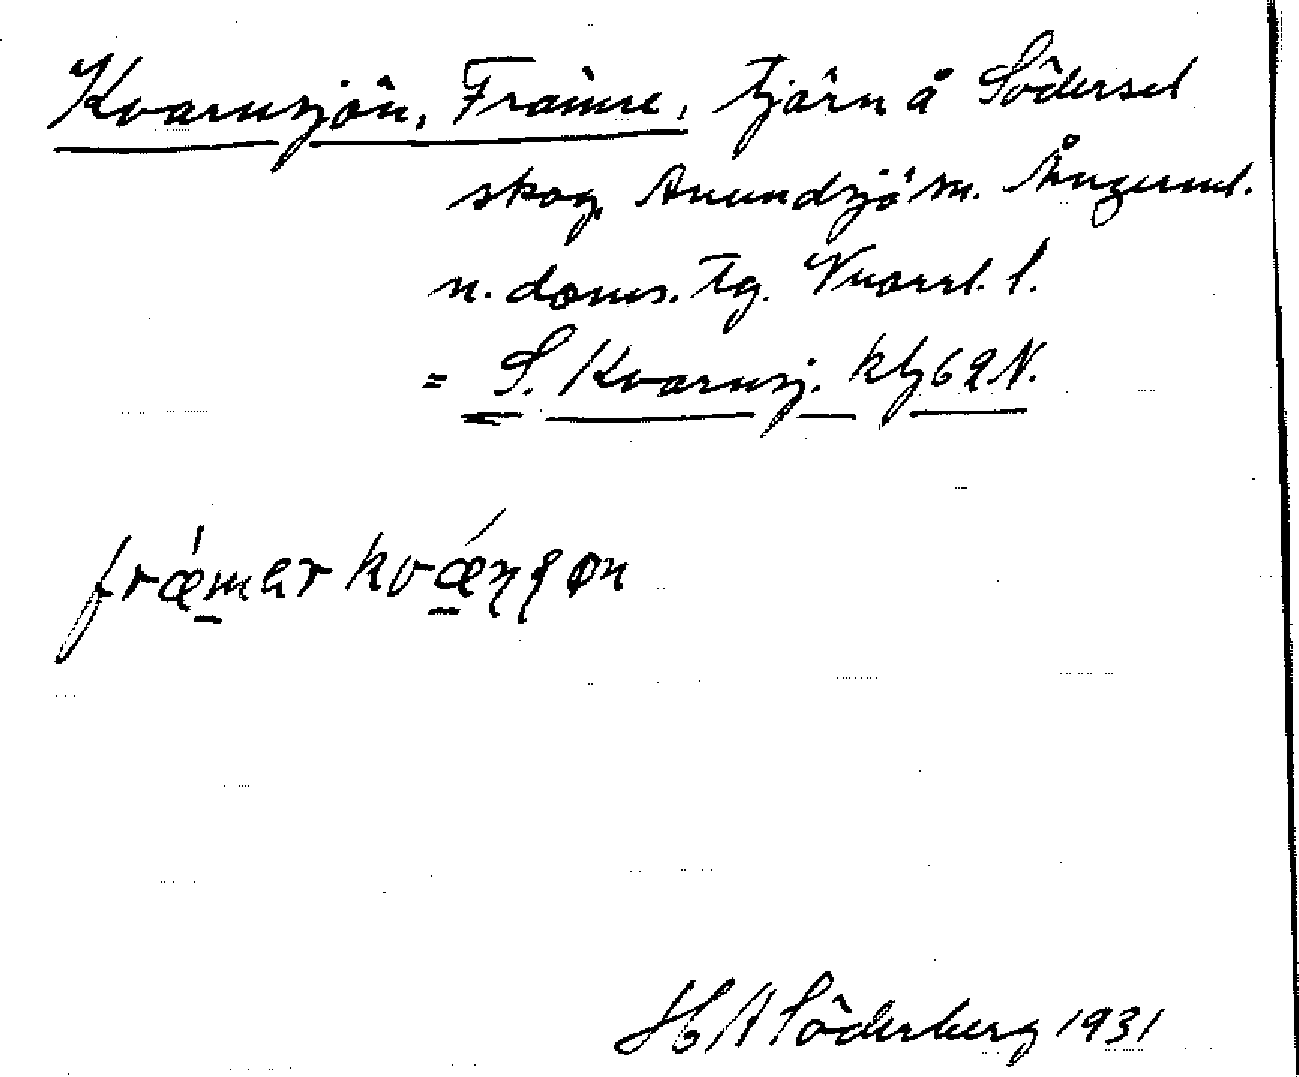 Kvarnsjön, Främre, tjärn å Södersel
skog, Anundsjö sn. Ångerml.
n. doms. tg.
= S. Kvarnsj. kbl 62 N.
fræmər kvænʂøn
H A Söderberg 1931